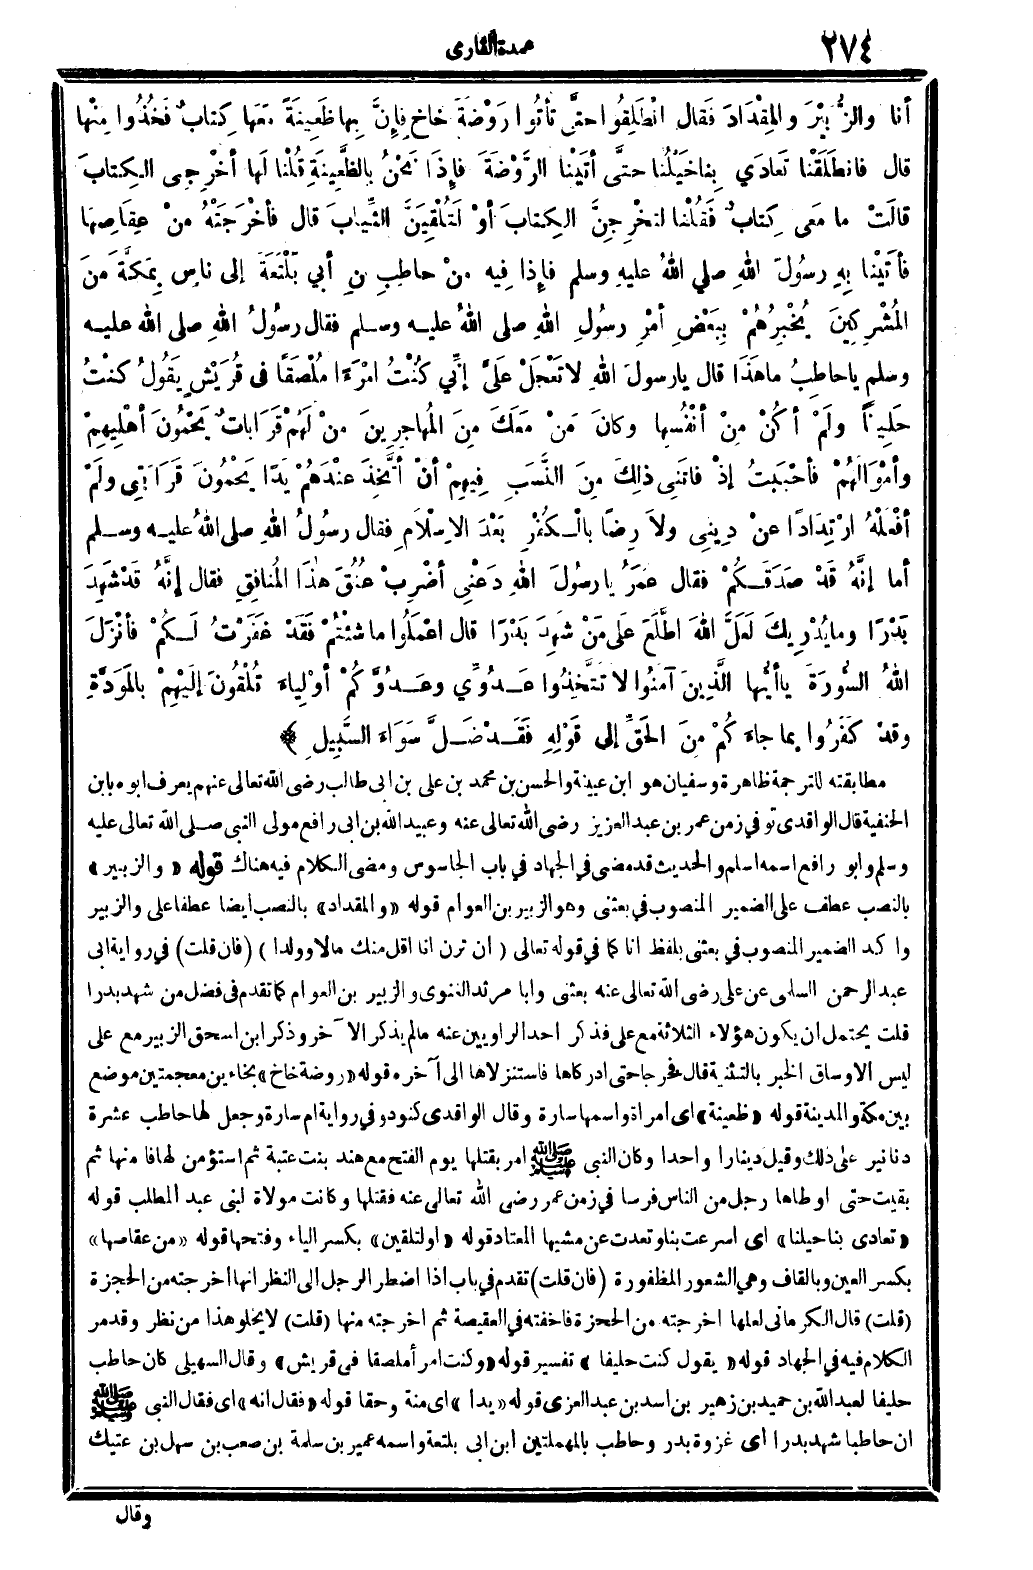 ٢٧٤
عمدة القارى
أنا والزُّبَيْرَ والمِقْدَادَ فَقال انْطَلِقُوا حتَّى تأتُوا رَوْضَةَ خاخٍ فإِنَّ بِها ظَعِينَةً مَعَها كِتابٌ فَخُذُوا مِنْها
قال فانطَلَقْنا تَعادَي بِناخَيْلُنا حتَّى أتَيْنا الرَّوْضَةَ فإِذَا نَحْنُ بالظَّعِينَةِ قُلْنا لَها أخْرِجِى الكِتابَ
قالَتْ ما مَعى كِتابٌ فَقُلْنا لتخْرِجِنَّ الكِتابَ أوْ لَتُلْقِيَنَّ الثِّيابَ قال فأخْرَجَتْهُ مِنْ عِقاصِها
فأتَيْنا بِهِ رسُولَ اللهِ صلي اللهُ عليهِ وسلم فإِذا فِيهِ مِنْ حاطِبِ بنِ أبي بَلْتَعَةَ إلى ناسٍ بِمَكَّةَ مِنَ
المُشْرِكِينَ يُخْبِرُهُمْ بِبَعْضِ أمْرِ رسُولِ اللهِ صلى اللهُ عليه وسلم فقال رسُولُ اللهِ صلى الله عليه
وسلم ياحاطِبُ ماهَذَا قال يارسولَ اللهِ لاتَعْجَلْ علَىَّ إنِّي كُنْتُ امْرَءًا مُلْصَقًا فى قُرَيْشٍ يَقُولُ كنْتُ
حَلِيفاً ولَمْ أكُنْ مِنْ أنْفُسِها وكانَ مَنْ مَعَكَ مِنَ المُهاجِرِينَ مَنْ لَهُمْ قَرَاباتٌ يَحْمُونَ أهْلِيهِمْ
وأمْوَالَهُمْ فأحْبَبْتُ إذْ فاتَنِى ذلِكَ مِنَ النَّسَبِ فِيهِمْ أنْ أتَّخِذَ عنْدَهُمْ يَدًا يَحْمُونَ قَرَابَتِى ولَمْ
أفْعَلْهُ ارْتِدَادًا عنْ دِينِى ولاَ رِضًا بالْكُفْرِ بَعْدَ الاِسْلاَمِ فقال رسُولُ اللهِ صلى اللهُ عليه وسلم
أما إنَّهُ قَدْ صَدَقَكُمْ فقال عُمَرُ يا رسولَ اللهِ دَعْنِى أضْرِبْ عُنُقَ هٰذا المُنافِقِ فقال إنَّهُ قَدْ شَهِدَ
بَدْرًا ومايُدْرِيكَ لَعَلَّ اللهَ اطَّلَعَ علَى مَنْ شَهِدَ بَدْرًا قال اعْمَلُوا ما شئْتُمْ فَقَدْ غَفَرْتُ لَكُمْ فأنْزَلَ
اللهُ السُّورَةَ ياأيُّها الَّذِينَ آمَنُوا لا تَتَّخِذُوا عَدُوِّي وعَدُوَّكُمْ أوْلِياءَ تُلْقُونَ إلَيْهِمْ بالمَوَدَّةِ
وقَدْ كَفَرُوا بِما جاءَكُمْ مِنَ الحَقِّ إلى قَوْلِهِ فَقَدْ ضَلَّ سَوَاءَ السَّبِيلِ ﴾
مطابقته للترجمة ظاهرة وسفيان هو ابن عيينة والحسن بن محمد بن على بن ابى طالب رضى الله تعالى عنهم يعرف ابوه بابن
الحنفية قال الواقدى توفي زمن عمر بن عبد العزيز رضى الله تعالى عنه وعبيد الله بن ابى رافع مولى النبى صلى الله تعالى عليه
وسلم وابو رافع اسمه اسلم والحديث قد مضى في الجهاد في باب الجاسوس ومضى الكلام فيه هناك قوله «والزبير»
بالنصب عطف على الضمير المنصوب في بعثنى وهو الزبير بن العوام قوله «والمقداد» بالنصب ايضا عطفا على والزبير
واكد الضمير المنصوب في بعثنى بلفظ انا كما في قوله تعالى (ان ترن انا اقل منك مالا وولدا) (فان قلت) في رواية ابى
عبد الرحمن السلمى عن على رضى الله تعالى عنه بعثنى وابا مرثد الغنوى والزبير بن العوام كما تقدم فى فضل من شهد بدرا
قلت يحتمل ان يكون هؤلاء الثلاثة مع على فذكر احد الراويين عنه مالم يذكر الآخر وذكر ابن اسحق الزبير مع على
ليس الاوساق الخبر بالتثنية قال فخرجا حتى ادركاها فاستنزلاها الى آخره قوله «روضة خاخ» بخاءين معجمتين موضع
بين مكة والمدينة قوله «ظعينة» اى امراة واسمها سارة وقال الواقدى كنود وفي رواية ام سارة وجعل لها حاطب عشرة
دنانير على ذلك وقيل دينارا واحدا وكان النبى ﷺ امر بقتلها يوم الفتح مع هند بنت عتبة ثم استؤمن لها فامنها ثم
بقيت حتى اوطاها رجل من الناس فرسا في زمن عمر رضى الله تعالى عنه فقتلها وكانت مولاة لبنى عبد المطلب قوله
«تعادى بناخيلنا» اى اسرعت بنا وتعدت عن مشيها المعتاد قوله «اولتلقين» بكسر الياء وفتحها قوله «من عقاصها»
بكسر العين وبالقاف وهي الشعور المظفورة (فان قلت) تقدم في باب اذا اضطر الرجل الى النظر انها اخرجته من الحجزة
(قلت) قال الكرمانى لعلها اخرجته من الحجزة فاخفته في العقيصة ثم اخرجته منها (قلت) لا يخلو هذا من نظر وقد مر
الكلام فيه في الجهاد قوله «يقول كنت حليفا» تفسير قوله «وكنت امرأ ملصقا فى قريش» وقال السهيلى كان حاطب
حليفا لعبد الله بن حميد بن زهير بن اسد بن عبد العزى قوله «يدا» اى منة وحقا قوله «فقال انه» اى فقال النبى ﷺ
ان حاطبا شهد بدرا اى غزوة بدر وحاطب بالمهملتين ابن ابى بلتعة واسمه عمير بن سلمة بن صعب بن سهل بن عتيك
وقال